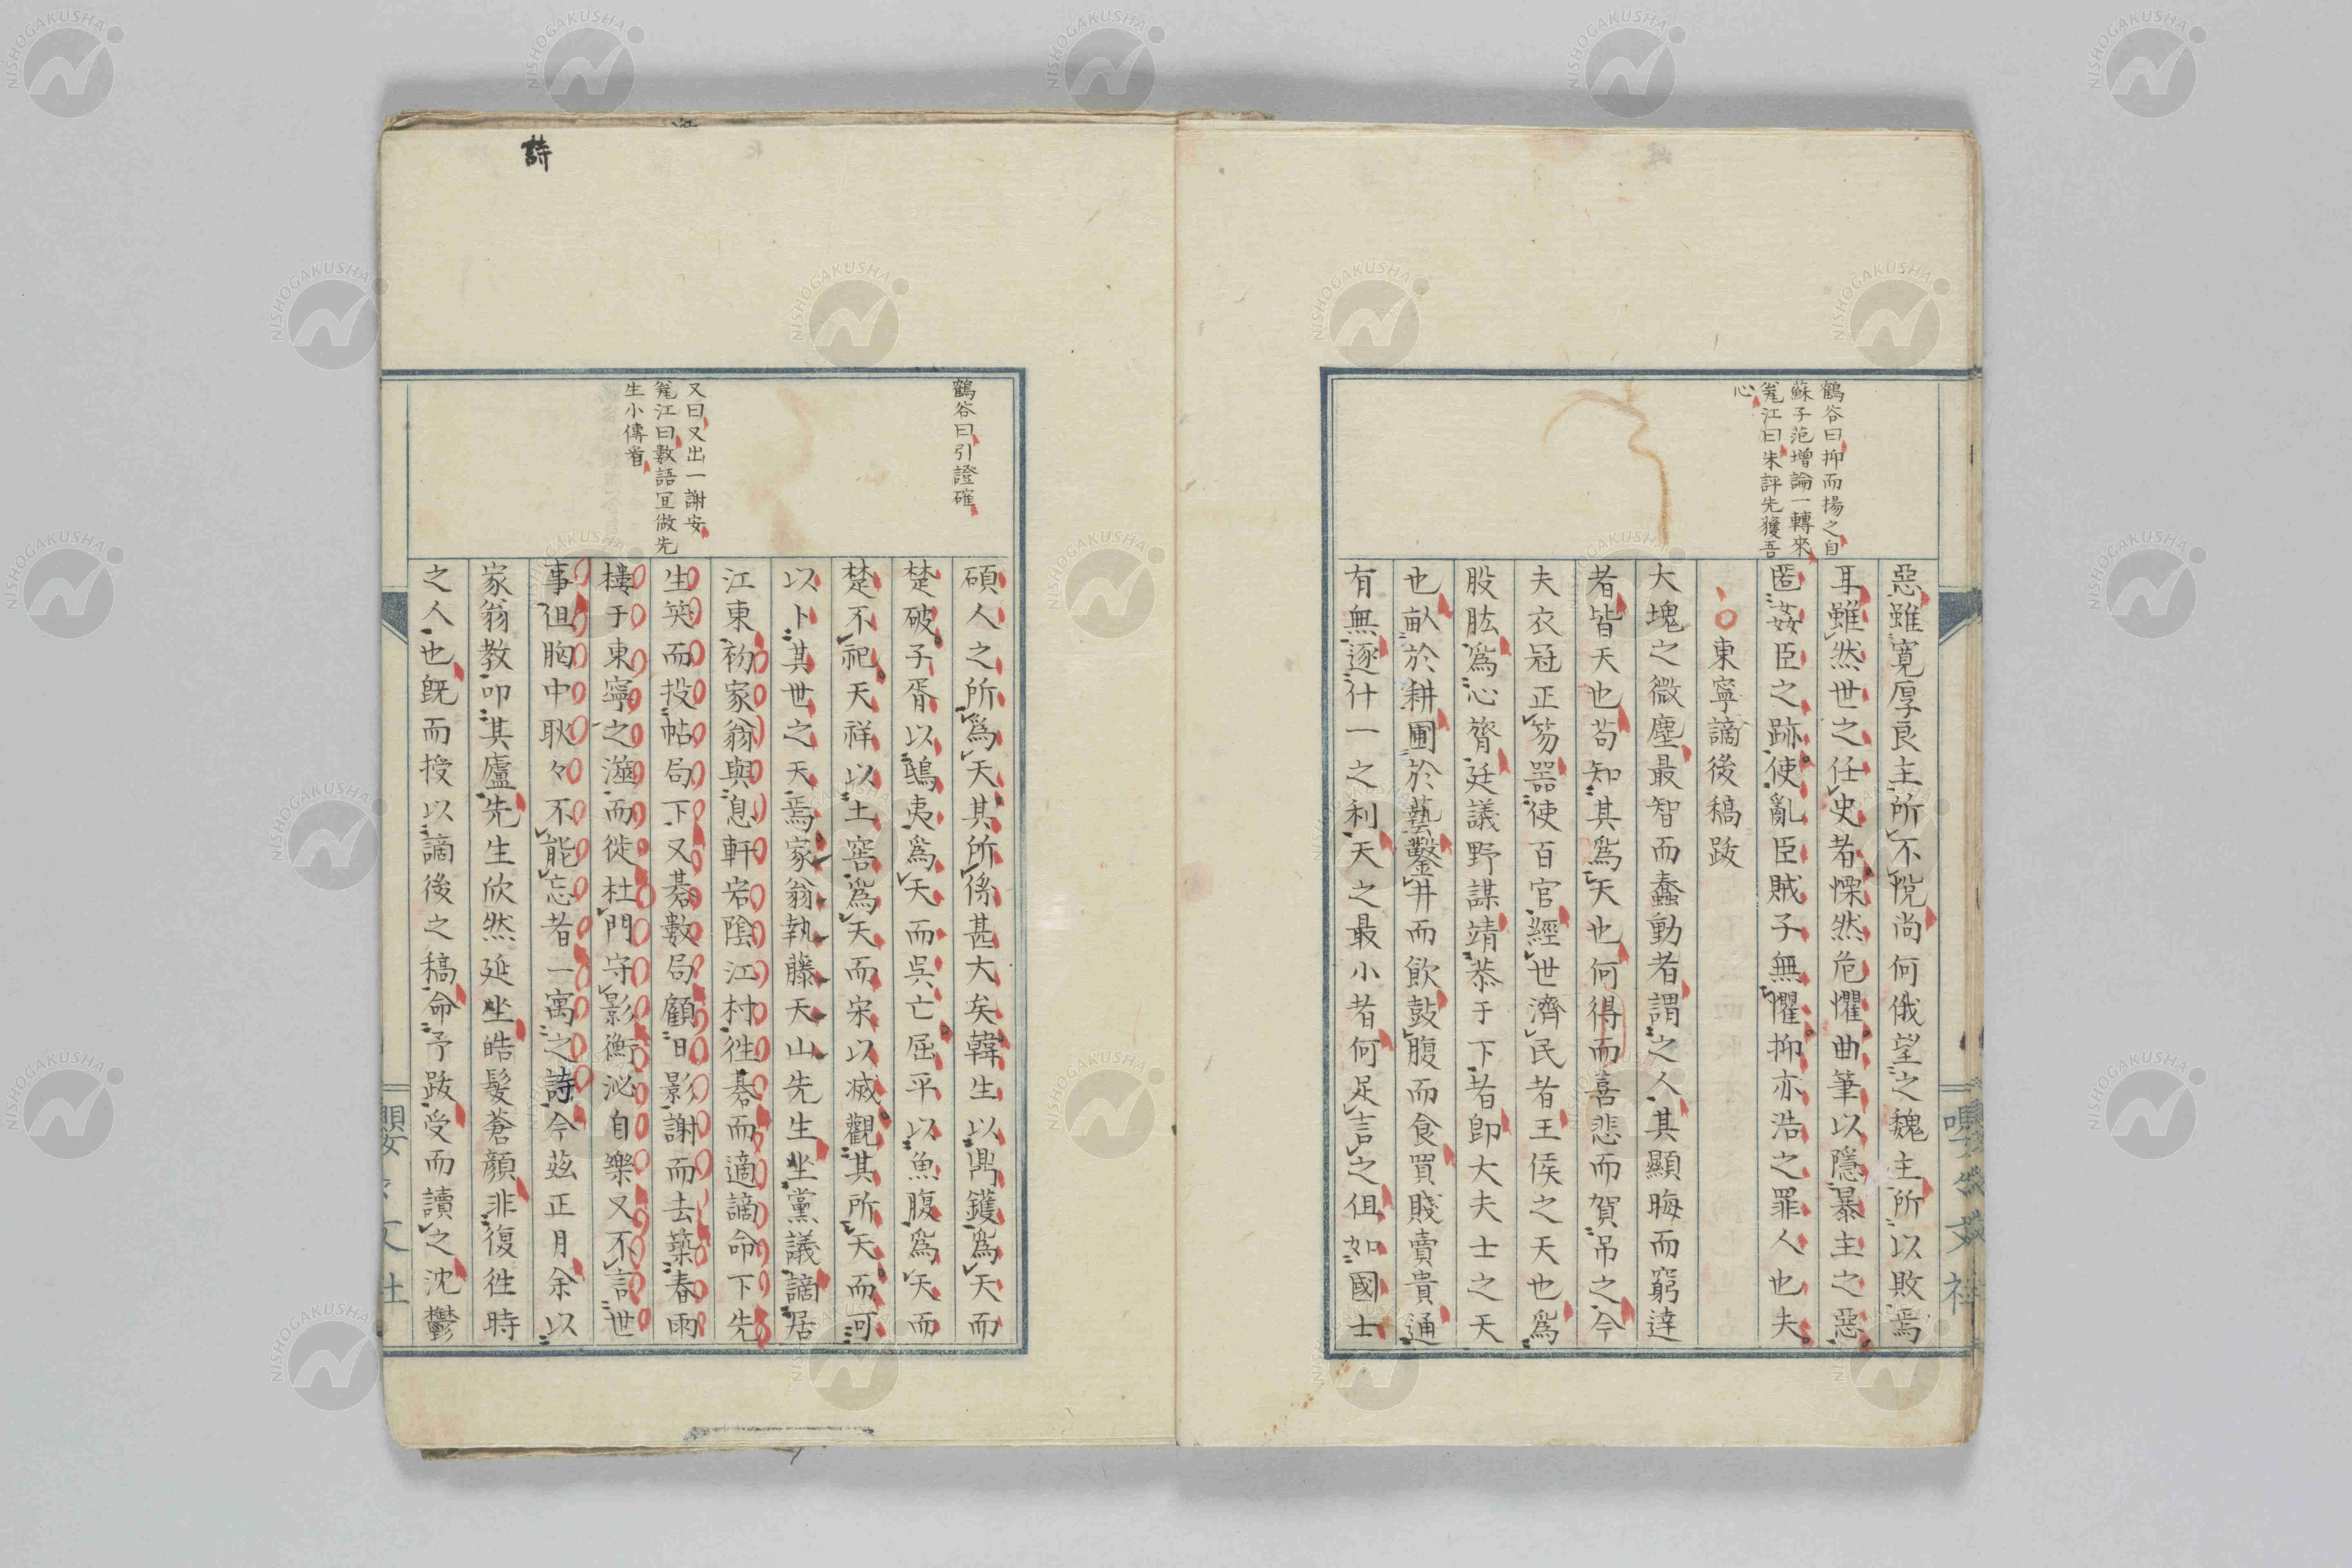 鶴谷曰抑而揚之自
蘇子范增論一轉來
篤江曰朱評先獲吾
心
惡雖寬厚良主所不悅尚何俄望之魏主所以敗焉
耳雖然世之任史者慄然危懼曲筆以隱暴主之惡
匿姦臣之跡使亂臣賊子無懼抑亦浩之罪人也夫
東寧謫後稿跋
大塊之微塵最智而蠢動者謂之人其顯晦而窮達
者皆天也苟知其為天也何得而喜悲而賀吊之今
夫衣冠正笏噐使百官經世濟民者王侯之天也為
股肱為心膂廷議野謀靖恭于下者即大夫士之天
也畝於耕圃於藝鑿井而飲鼓腹而食買賤賣貴通
有無逐什一之利天之最小者何足言之但如國士
鶴谷曰引證確
又曰又出一謝安
江曰數語宜做先
生小傳看
詩
碩人之所為天其所係甚大矣韓生以鼎鑊為天而
楚破子胥以鴟夷為天而吳亡屈平以魚腹為天而
楚不祀天祥以土窖為天而宋以滅觀其所天而可
以卜其世之天焉家翁執藤天山先生坐黨議謫居
江東初家翁與息軒宕陰江村徃碁而適謫命下先
生笑而投帖局下又碁數局顧日影謝而去築春雨
樓于東寧之澨而徙杜門守影衡泌自樂又不言世
事但胸中耿々不能忘者一寓之詩今茲正月余以
家翁教叩其廬先生欣然延坐皓髮蒼顏非復徃時
之人也既而授以謫後之稿命予跋受而讀之沈鬱